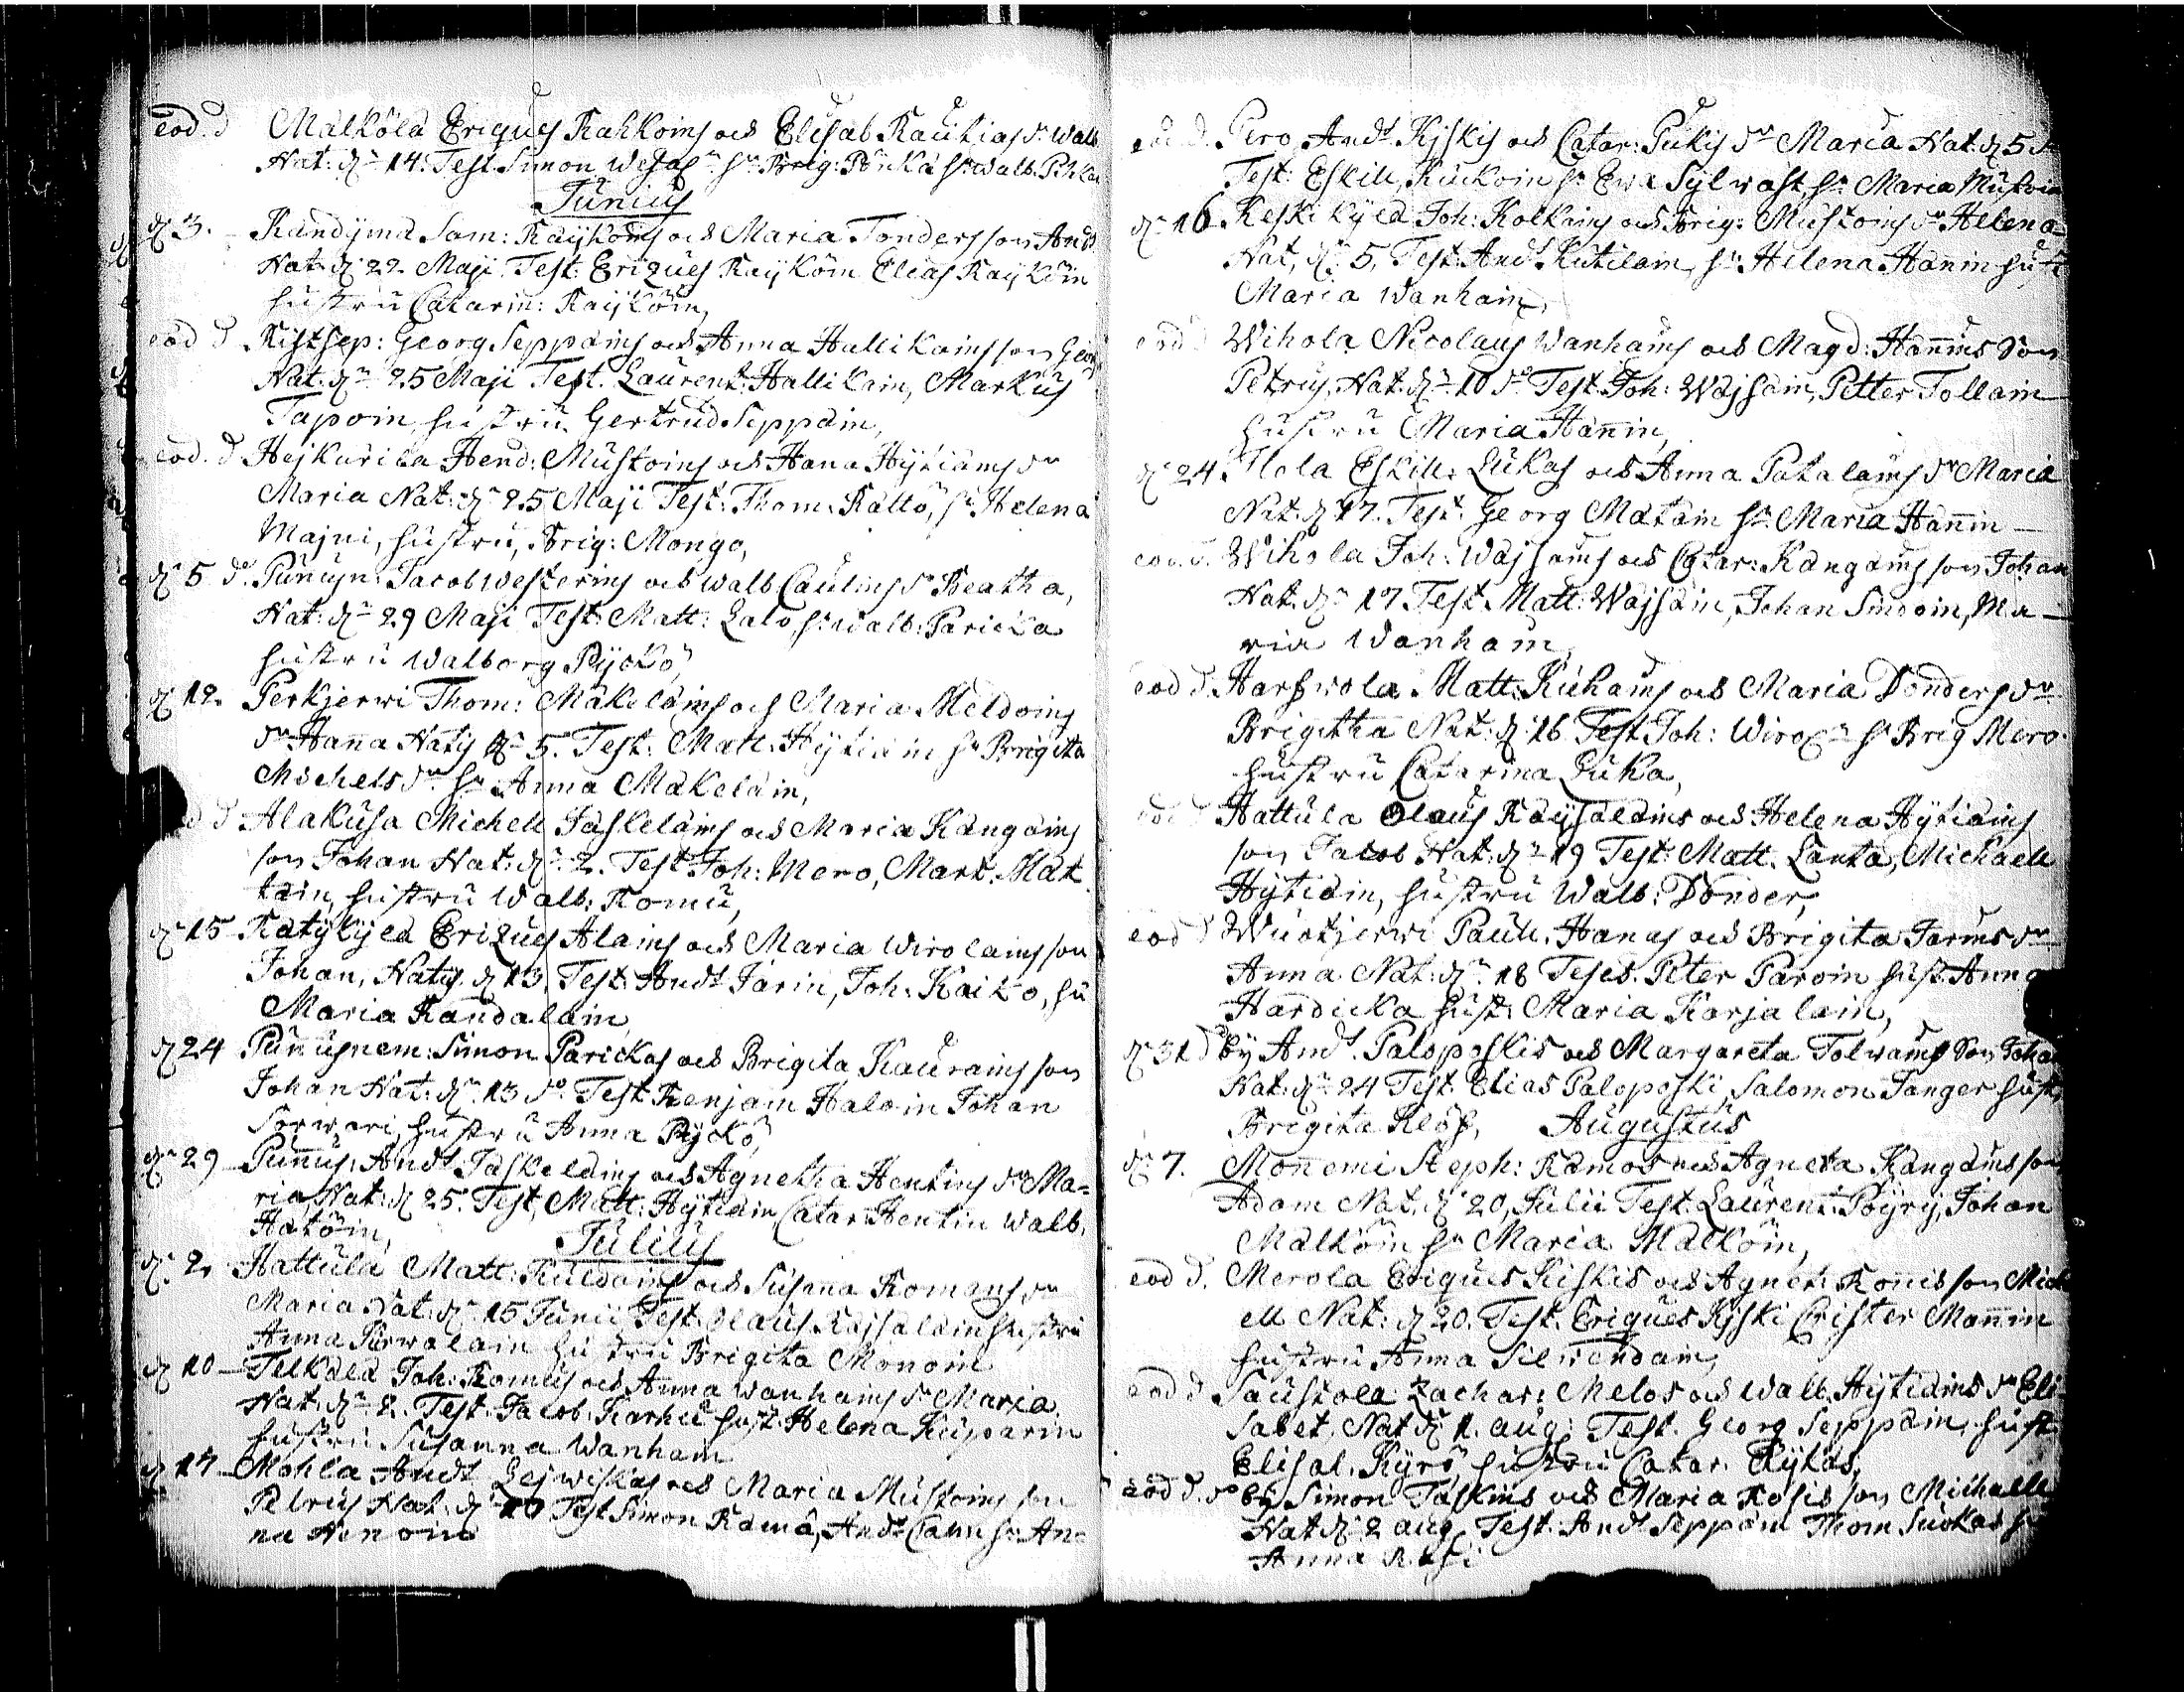 eod. d Mälkölä Eriques Rahkoins och Elisab Rautias dr Walb
Nat: dn 14. Test. Simon hr Brig: Pönkä hr Walb. Pihka
Junius
dn 3. Kandyma Sam: Raykoins och Maria Tonders son Andr
Nat: dn 22. Maji. Test: Eriques Rayköin Elias Rayköin
hustru Catarin: Raykoin,
eod d Ristsep: Georg Seppäins och Anna Hallikains son Georg
Nat: dn 25 Maji Test. Laurent: Hallikain, Markus
Tapoin hustru Gertrud Seppäin,
eod. d Hejkurila Hend: Mustoins och Hana Hytiäins dr
Maria Nat: dn 25 Maji Test: Thom: Kältö, hr Helena
Majni, hustru, Brig: Mongo,
dn 5 do. Jacob Westerins och Walb Caulins dr Beatha,
Nat: dn 29 Maji Test: Matt: Lalo hr Walb: Paricka
hustru Walborg Pyckö,
dn 12. Perkjerwi Thom: Mäkeläins och Maria Meldoins
dr Hanna Natus dn 5. Test: Matt: Hytiäin hr Brigita
Michelsdr hr Anna Mäkeläin,
d d Alakusa Michell Jäskeläins och Maria Kangains
son Johan Nat: dn 2. Test Joh: Mero, Mart. Mat
tain, hustru Walb: Romu,
dn 15 Ratykylä Eriques Alains och Maria Wirolains son
Johan, Natus. dn 13. Test: Andr Järin, Joh: Kaiko, hu
Maria Randalain,
dn 24 Punnusnem: Simon Parickas och Brigita Kaurains son
Johan Nat: dn 13 do. Test Benjam Haloin Johan
Sorwari hustru Anna Pyckö,
dn 29 Punnus, Andr Jäskeläins och Agnetha Hentins dr Ma=
ria, Nat: dn 25. Test, Matt: Hytiäin Catar: Hentin Walb.
Hatöin,
Julius
dn 2. Hattula Matt: Kuldains och Susanna Romans dr
Maria Nat: dn 15 Junii Test: Olaus Rajsalain hustru
Anna hustru Brigita Monoin
dn 10 Telkälä Joh: Romus och Anna Wanhains dr Maria
Nat: dn 2. Test: Jacob: Karhu hust: Helena Kusparin
hustru Susanna Wanham
dn 17 Mohla Andr Lejwiskas och Maria Mustoins son
Petrus Nat: dn 10 Test Simon Rämä, Andr Cahn hr An=
na Honoin
eod d. Pero Andr Kyskis och Catar: Pukis dr Maria Nat: dn 5
Test: Eskill Kuckoin hr Ewa Sylwast hr Maria Mustoin
dn 16 Keskikylä Joh: Kolkains och Brig: Mustoins dr Helena
Nat, dn 5, Test: Andr Kutilain, hr Helena Hänin hust
Maria Wanhain,
eod d Wihola Nicolaus Wanhains och Magd: Hännins Son
Petrus, Nat: dn 10 do Test. Joh: Wajsain, Petter Tollain
hustru Maria Hännin,
dn 24. Ilola Eskill: Lukas och Anna Patalains dr Maria
Nat: dn 17. Test: Georg Matain hr Maria Hännin
eod. d. Wihola Joh: Wajsains och Catar: Kangains son Johan
Nat: dn 17 Test. Matt: Wajsain, Johan Smooin, Ma
ria Wanham,
eod d. Matt: Kiehains och Maria Donders dr
Brigitha Nat: dn 16 Test Joh: hr Brig Mero
hustru Catarina Luka,
eod d Hattula Olaus Rajsalains och Helena Hytiäins
son Jacob Nat: dn 19 Test: Matt. Lanta, Michaell
Hytiäin, hustru Walb: Donder,
eod d Wuotjerwi Paull. Hanas och Brigita Jarins dr
Anna Nat: dn 18 Testes: Peter Paroin hust Anna
Hardicka hust: Maria Karjalain,
dn 31 do By Andr. Paloposkis och Margareta Tolwains Son Johan
Nat: dn 24 Test: Elias Paloposki, Salomon Tanger hust
Brigita Klöf, Augustus
dn 7. Monnemi Steph: Ramos och Agneta Kangains son
Adam Nat: dn 20, Julii Test: Laurent: Pöyry, Johan
Mälköin hr Maria Mälköin,
eod d. Merola Eriques Kiskis och Agnet: Ronnis son Mich
ell Nat: dn 20. Test. Eriques Kyski Crister Mannin
hustru Anna Silwendain,
eod d Saustola: Zachar: Melos och Walb. Hytiäins dr Eli
sabet, Nat dn 1. aug: Test. Georg Seppäin, hust
Elisab. Kyrö hustru Catar. Rykäs,
eod d. do By Simon Taskins och Maria Rosis son Michaell
Nat dn 2 aug. Test: Andr Seppäin Thom Suokas hr
Anna Rosi